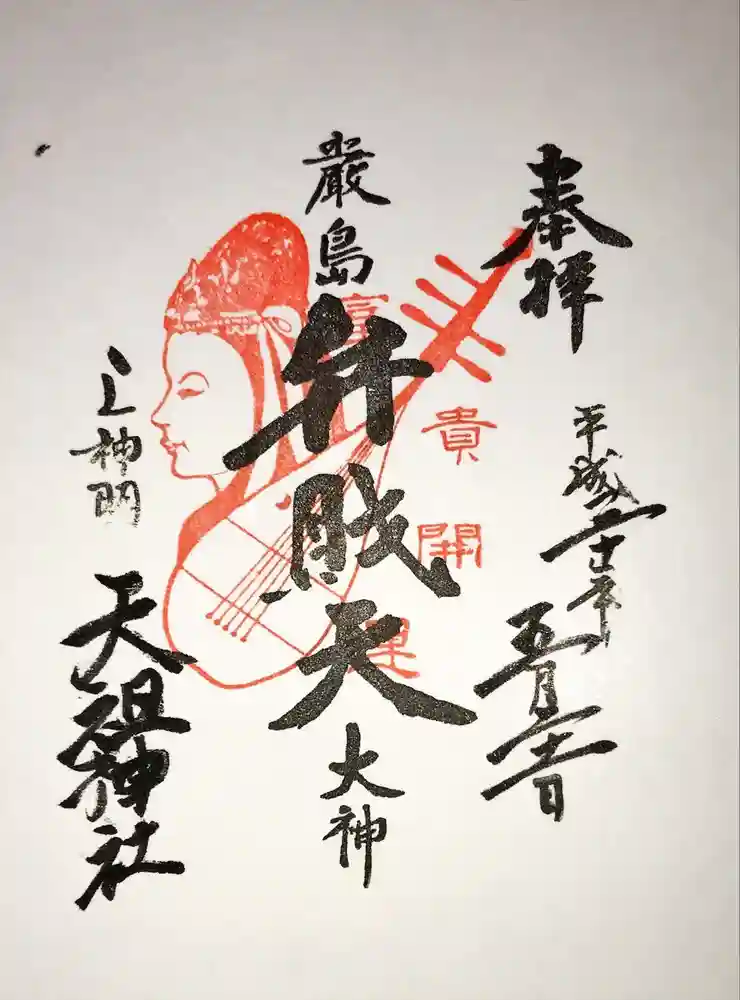 奉拝
平成二十年
五月二十日
厳島
弁財天
大神
富貴開運
上神明
天祖神社